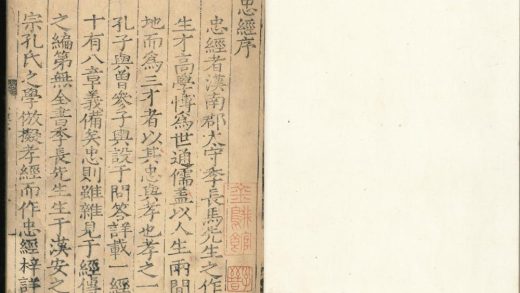 忠經序
忠經者漢南郡太守季長馬先生之作
生才高學博爲世通儒蓋以人生兩間
地而為三才者以其忠與孝也孝之一
孔子與曾參子輿設于問答詳載一經
十有八章義備矣忠則雖雜見于經傳
之編第無全書季長先生生于漢安之
宗孔氏之學倣擬孝經而作忠經梓詳